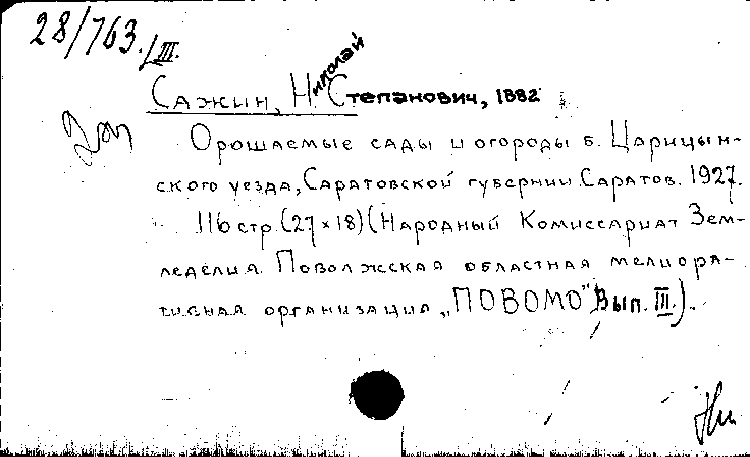 28/763./III.
Сажин, Николай Степанович, 1882
Орошаемые сады и огороды б. Царицын-
ского уезда, Саратовской губернии. Саратов. 1927.
116 стр. (27×18) (Народный Комиссариат Зем-
леделия. Поволжская областная мелиора-
тивная организация „ПОВОМО" Вып. III.).